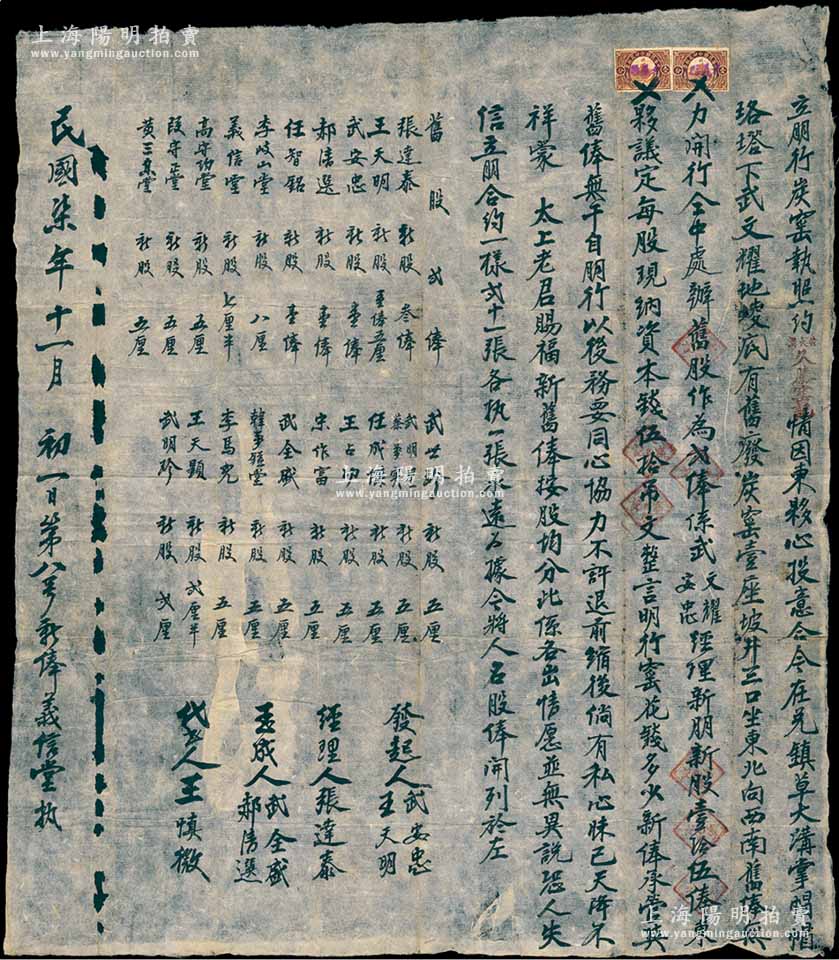 立朋行炭窑執照約 情因東夥心投意合今在兑鎮草大溝掌
珞塔下武文耀地崚底有舊廢炭窑壹座坡井三口坐東北向西南舊俸無
力開行仝中處辦舊股作為弍俸係武文耀安忠經理新朋新股壹拾伍俸東
夥議定每股現納資本錢伍拾吊文整言明行窑花錢多少新俸承當與
舊俸無干自朋行以後務要同心協力不許退前縮後倘有私心昧己天降不
祥蒙 太上老君賜福新舊俸按股均分此係各出情愿並無異說恐人失
信立朋合約一樣弍十一張各执一張永遠為據今將人名股俸開列於左
舊股 弍俸
張達泰 新股 叁俸
王天明 新股 壹俸五厘
武安忠 新股 壹俸
郝清選 新股 壹俸
任智銘 新股 壹俸
李岐山堂 新股 八厘
義信堂 新股 七厘半
高守功堂 新股 五厘
段守正堂 新股 五厘
黄三 堂 新股 五厘
武世 新股 五厘
武明 蔡 新股 五厘
任成 新股 五厘
王占 新股 五厘
宋作富 新股 五厘
武全盛 新股 五厘
韓 堂 新股 五厘
李馬兜 新股 五厘
王天顯 新股 弍厘半
武明珍 新股 弍厘
發起人 武安忠 王天明
經理人 張達泰
玉成人 武全盛 郝清選
代書人 王慎徽
民國柒年十一月 初一日第八号新俸義信堂执
上海陽明拍賣
www.yangmingauction.com
上海陽明拍賣
www.yangmingauction.com
上海陽明拍賣
www.yangmingauction.com
上海陽明拍賣
www.yangmingauction.com